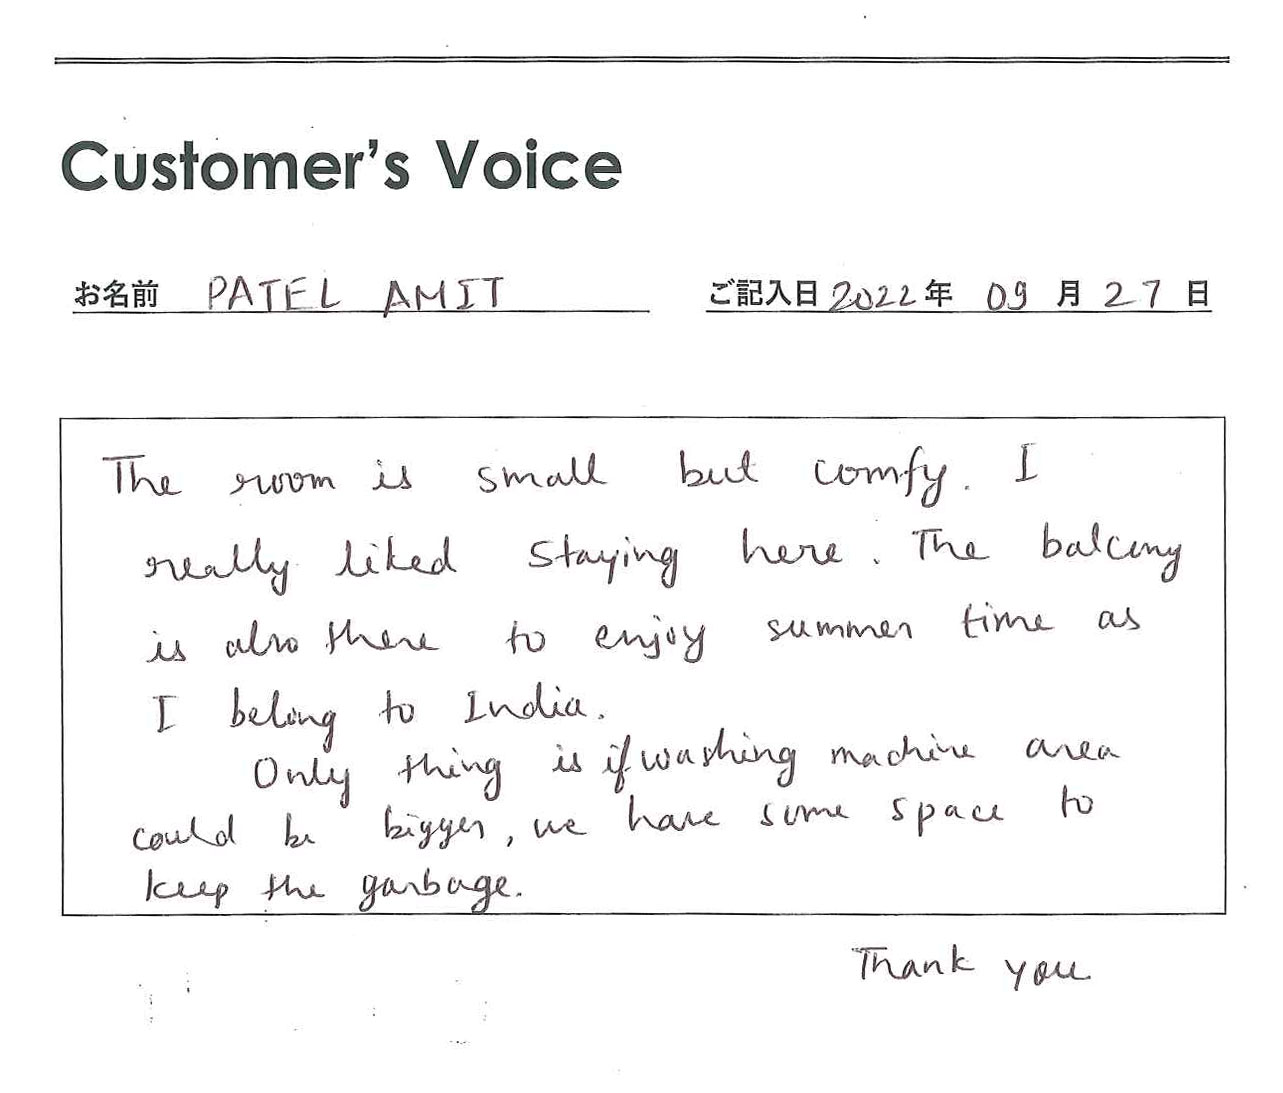 Customer's Voice
お名前 PATEL AMIT ご記入日 2022年 09月 27日
The room is small but comfy. I
really liked staying here. The balcony
is also there to enjoy summer time as
I belong to India.
Only thing is if washing machine area
could be bigger, we have some space to
keep the garbage.
Thank you